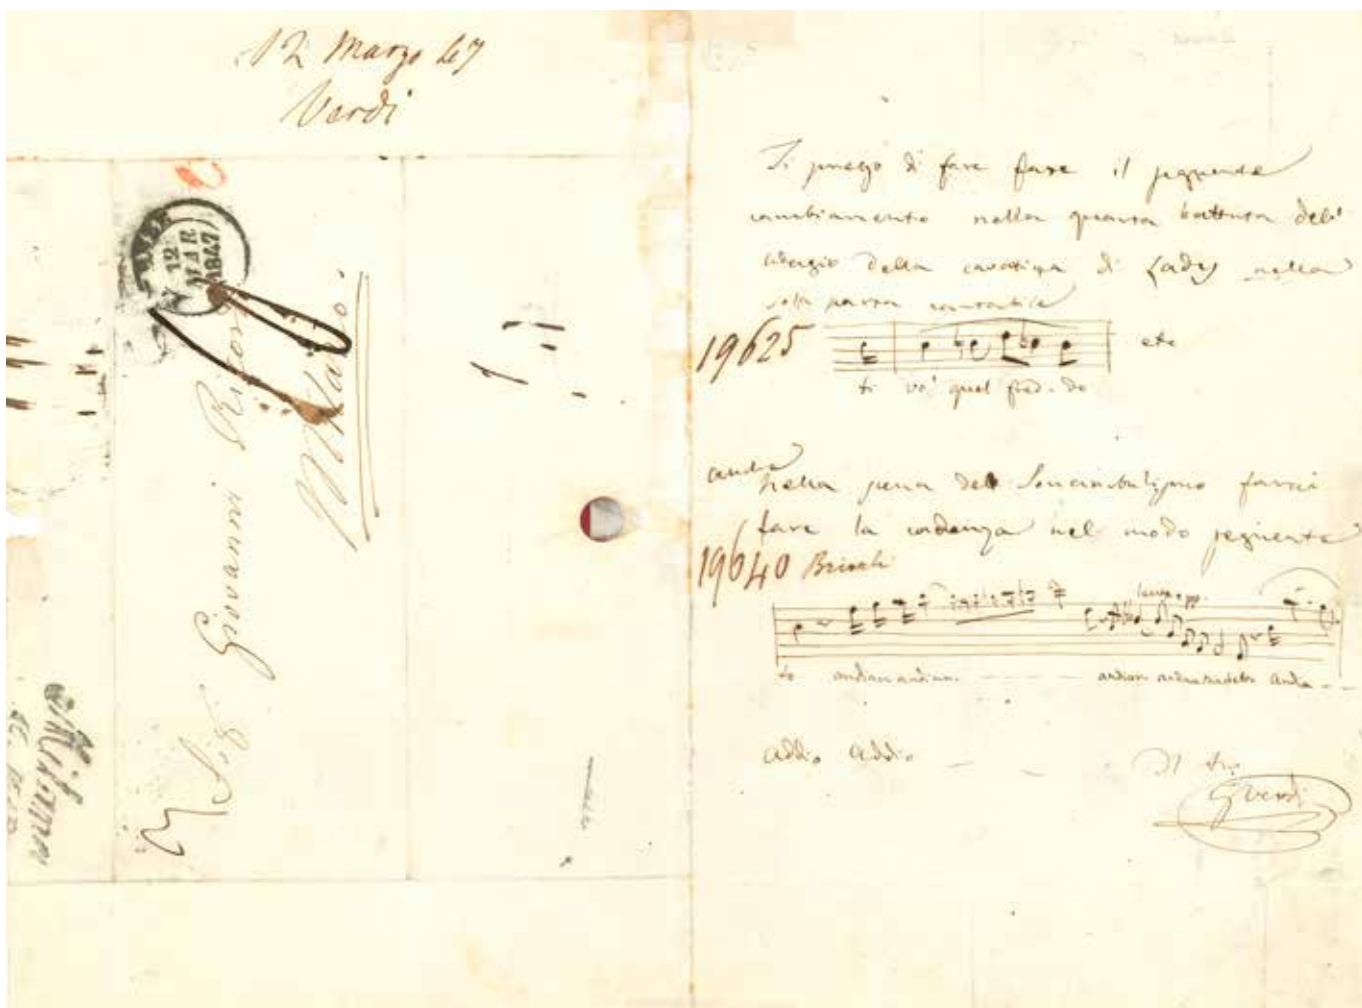 12 Marzo 47
Verdi
12
MAR
1847
Al Sig. Giovanni Ricordi
Milano
Ti prego di fare fare il seguente
cambiamento nella quarta battuta dell'
adagio della cavatina di Lady nella
sola parte cantabile
19625
etc
ti vo' quel fred-do
anche
Nella scena del Sonnambulismo farai
fare la cadenza nel modo seguente
19640
andiam andiam
andiam
Addio Addio
Il tuo
GVerdi